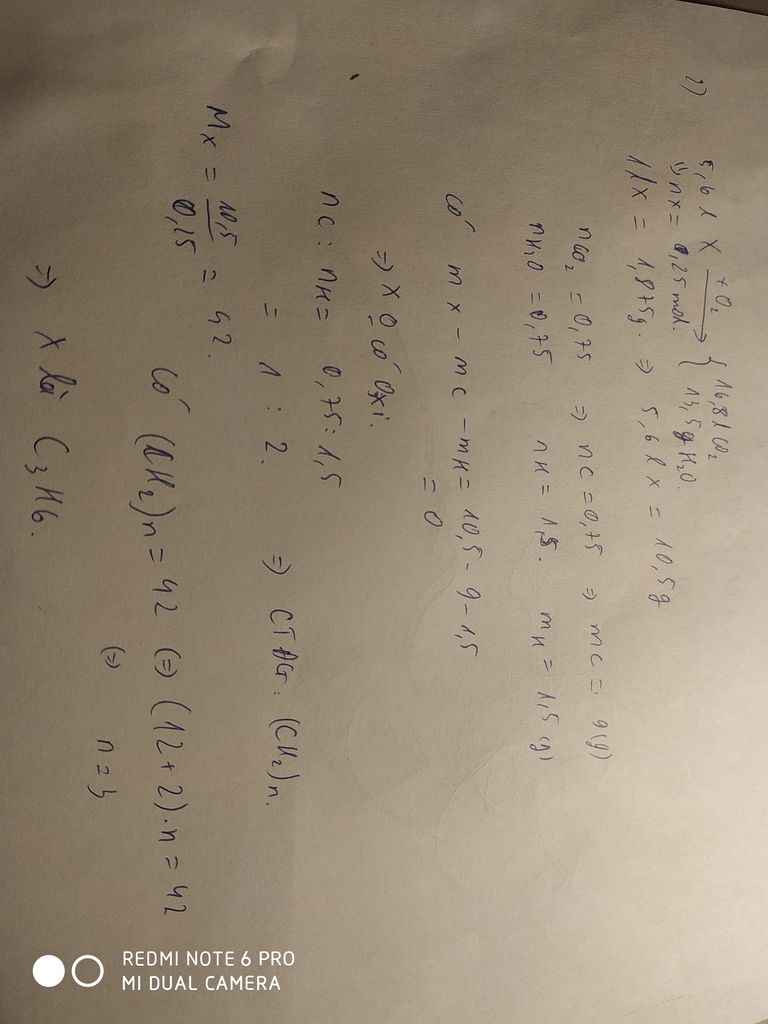 2)
5,6 l X + O₂ → { 16,8 l CO₂
13,5g H₂O.
=> nx = 0,25 mol.
1 l X = 1,875g. => 5,6 l X = 10,5g
nCO₂ = 0,75 => nC = 0,75 => mC = 9(g)
nH₂O = 0,75 nH = 1,5. mH = 1,5(g)
có mX - mC - mH = 10,5 - 9 - 1,5
= 0
=> X O có Oxi.
nC : nH = 0,75 : 1,5
= 1 : 2. => CTĐG : (CH₂)n.
Mx = 10,5 / 0,25 = 42.
Có (CH₂)n = 42 (=) (12+2).n = 42
(=) n = 3
=> X là C₃H₆.
REDMI NOTE 6 PRO
MI DUAL CAMERA